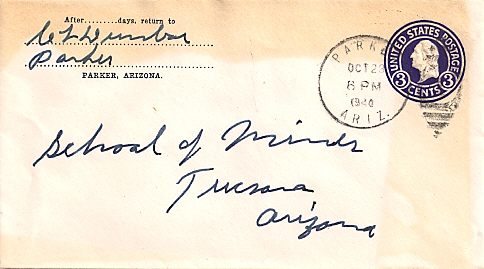 After.........days, return to
C L Dunbar
Parker
PARKER, ARIZONA.
PARKER
OCT 23
6 PM
1940
ARIZ.
UNITED STATES POSTAGE
3 3
CENTS
School of Minds
Tucson
Arizona